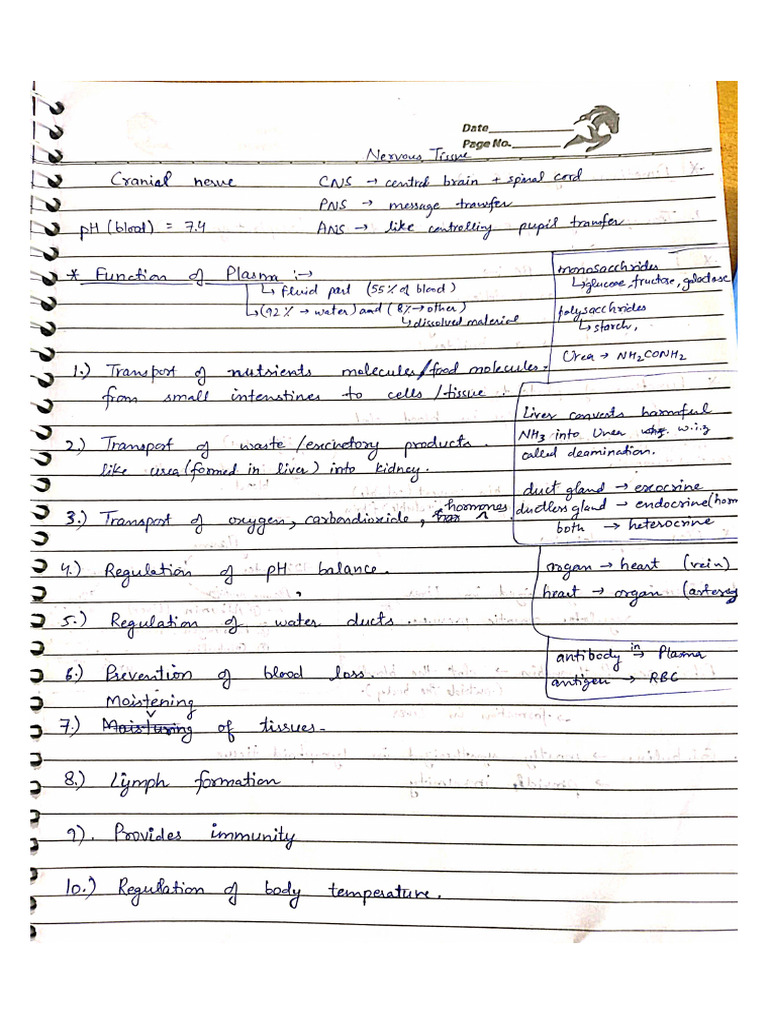 Date
Page No.
Nervous Tissue
Cranial nerve CNS → central brain + spinal cord
PNS → message transfer
pH (blood) = 7.4 ANS → like controlling pupil transfer
* Function of Plasma :→
↳ fluid part (55% of blood)
↳ (92% → water) and (8% → other)
↳ dissolved material
monosacchrides
↳ glucose, fructose, galactose
polysacchrides
↳ starch,
Urea → NH2CONH2
1.) Transport of nutrients molecules/food molecules.
from small intenstines to cells /tissue.
2.) Transport of waste /excretory products.
like urea (formed in liver) into kidney.
Liver converts harmful
NH3 into Urea w.i.z
called deamination.
duct gland → exocrine
ductless gland → endocrine (horm
both → heterocrine
3.) Transport of oxygen, carbondioxide, hormones
4.) Regulation of pH balance.
organ → heart (vein)
heart → organ (artery
5.) Regulation of water ducts.
antibody in → Plasma
antigen → RBC
6.) Prevention of blood loss.
Moistening
7.) of tissues.
8.) Lymph formation
9). Provides immunity
10.) Regulation of body temperature.